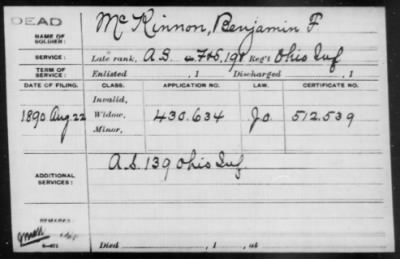 DEAD
NAME OF SOLDIER: McKinnon, Benjamin F
SERVICE: Late rank, A.S. 198 Reg't Ohio Inf
TERM OF SERVICE: Enlisted , 1 Discharged , 1
DATE OF FILING. CLASS. APPLICATION NO. LAW. CERTIFICATE NO.
Invalid,
1890 Aug 22 Widow, 430.634 Jo 512.539
Minor,
ADDITIONAL SERVICES: A.S. 139 Ohio Inf
REMARKS:
Died , 1 , at